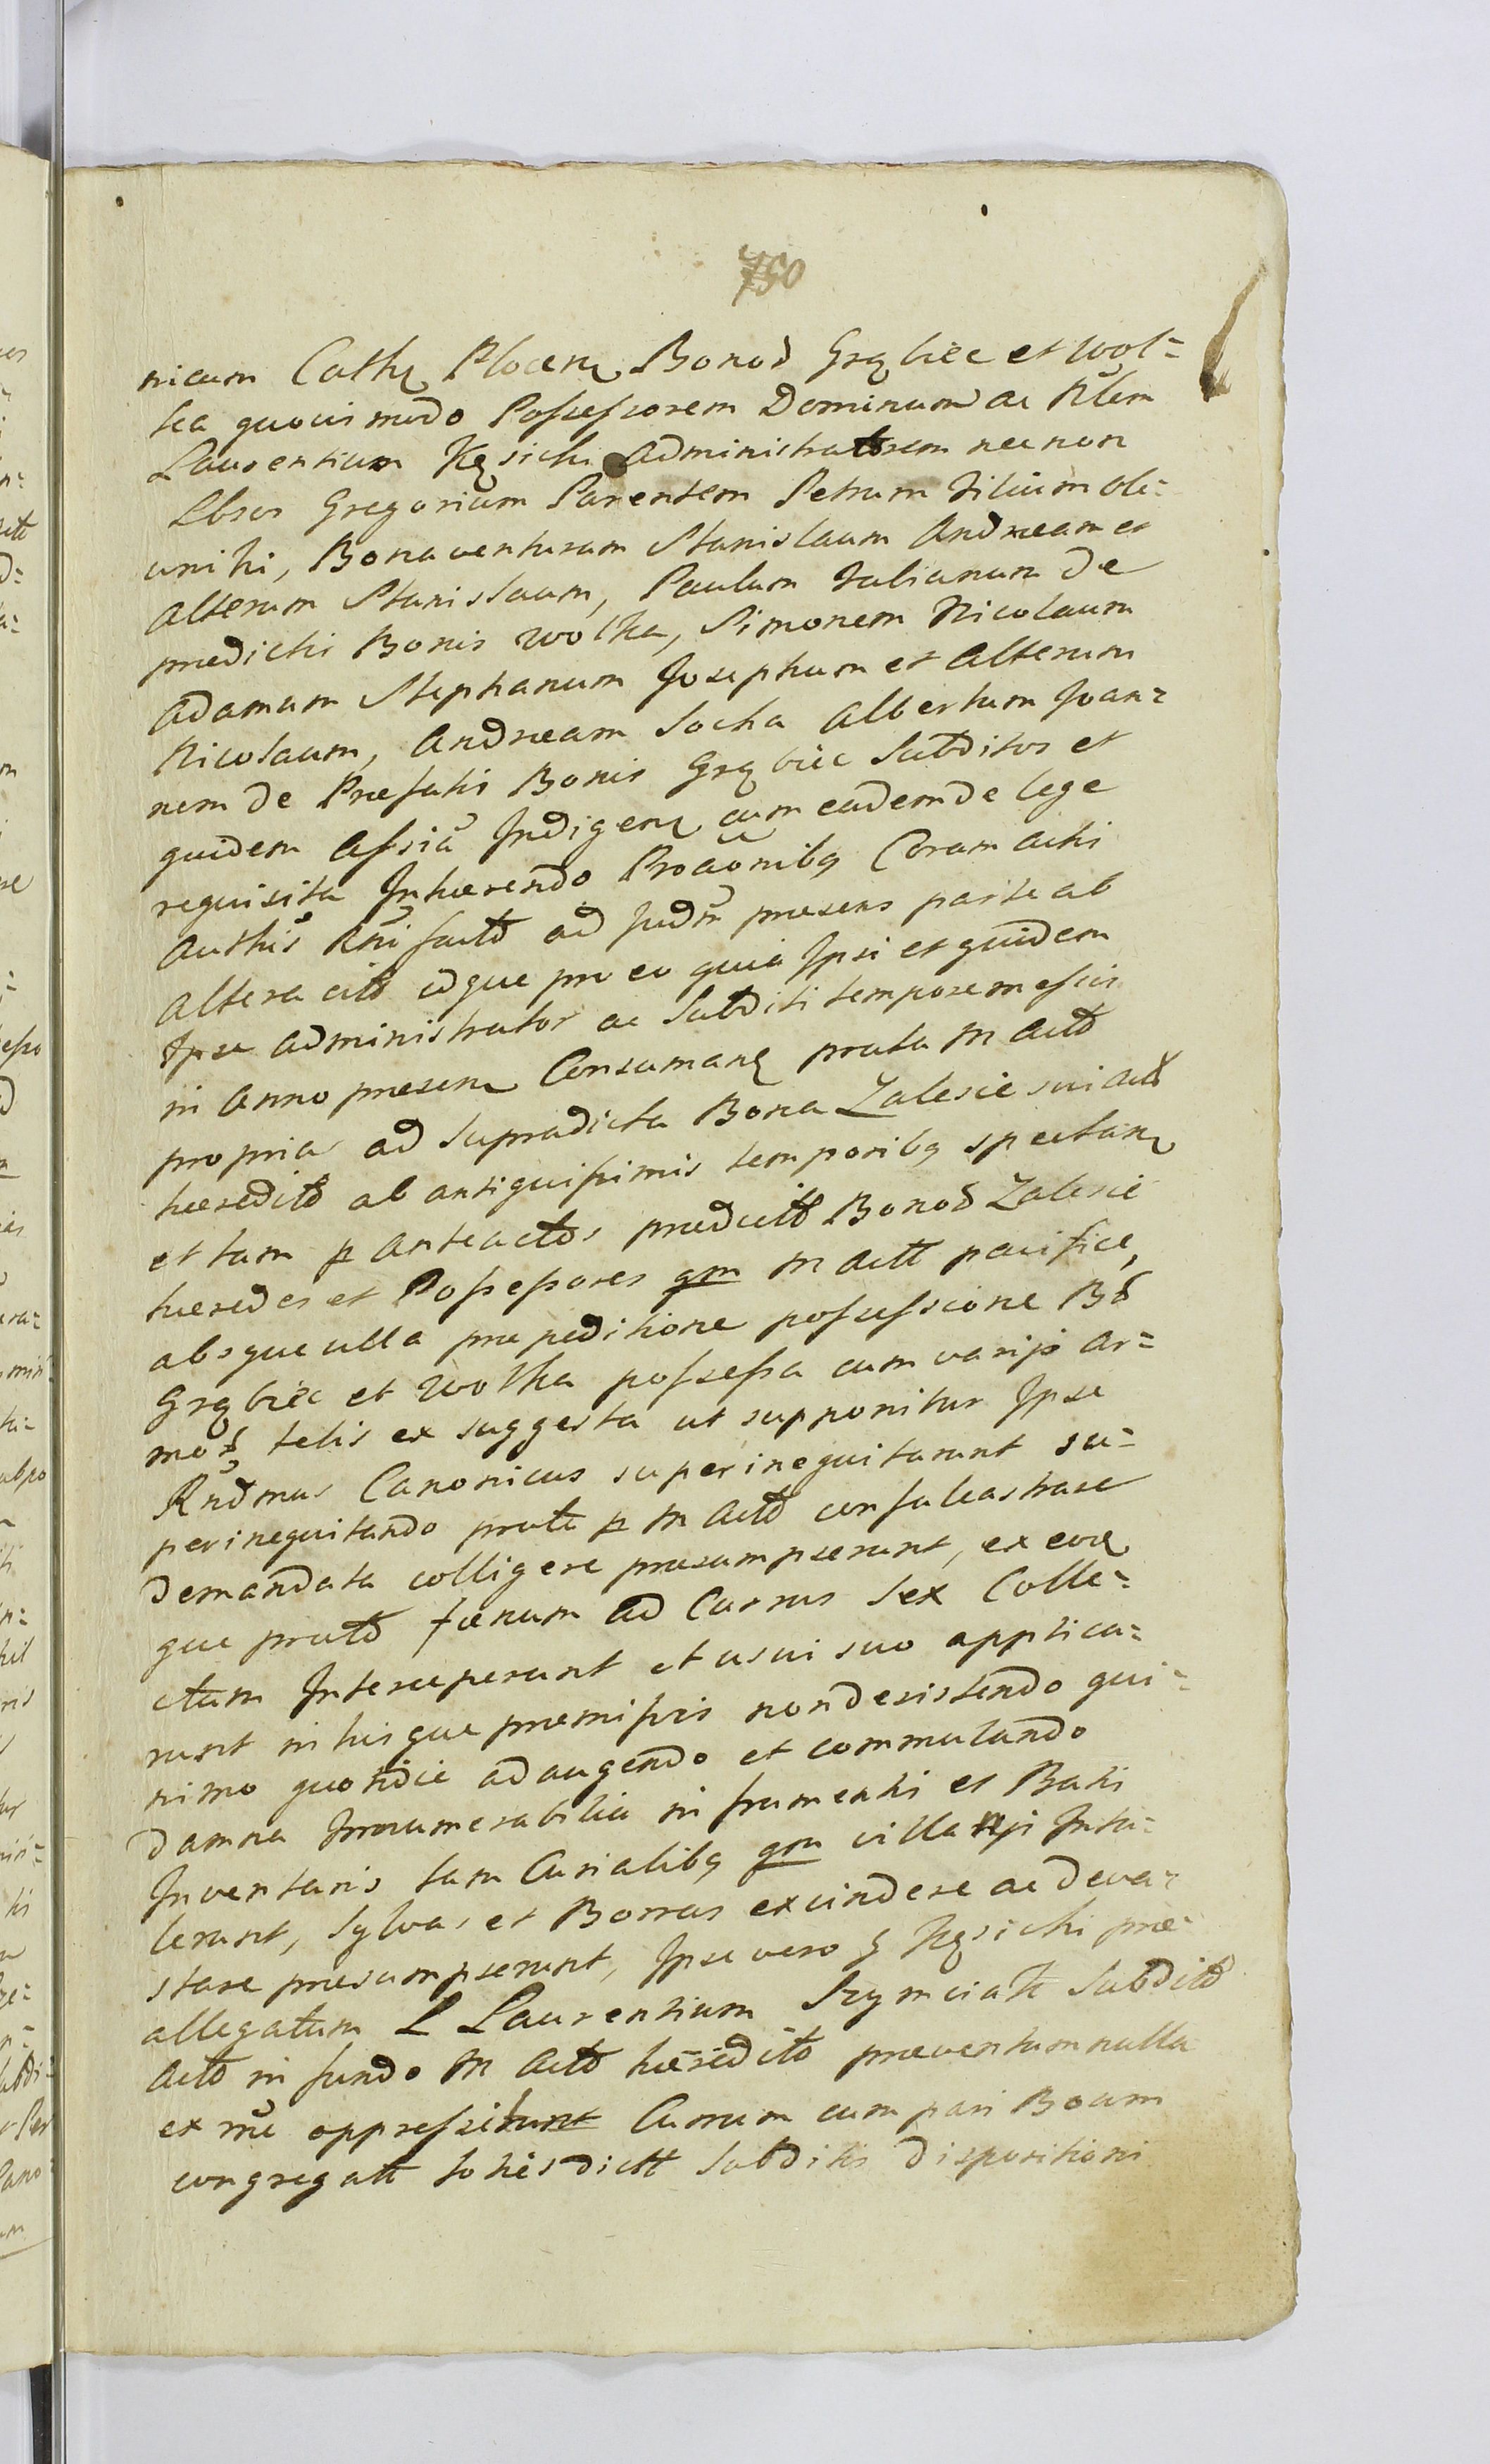 750
nicum Cathę Plocenę Bonoꝝ Grąbiec et Wol=
ka quovismodo Possessorem Dominum ac Nlem
Laurentium Kęsicki Administratorem necnon
Lbsos Gregorium Parentem Petrum Filium ole=
uniki, Bonaventuram Stanislaum Andream et
alterum Stanislaum, Paulum Julianum de
prædictis Bonis Wolka, Simonem Nicolaum
Adamum Stephanum Josephum et alterum
Nicolaum, Andream Socha Albertum Joan=
nem de Præfatis Bonis Grąbiec Subditos et
quidem Assiã Indigenę cum eadem de lege
requisita Inhærendo Proãõnibꝰ Coram actis
Authis Rni factꝭ ad Judm præsens parte ab
altera citõ idque pro eo quia Ipsi et quidem
Ipse Administrator ac Subditi tempore messis
in Anno præsenę Consumanę prata M Actõ
propria ad supradicta Bona Zalesie sui actõ
hæreditõ ab antiquissimis temporibꝰ spectanę
et tam p anteactos prædictõ Bonoꝝ Zalesie
hæredes et Possessores qm M Actt pacifice,
absque ulla præpeditione possessione Bꝝ
Grąbiec et Wolka possessa cum varijs ar=
moꝝ telis ex suggesta ut supponitur Ipse
Rndmus Canonicus superinequitarunt su=
perinequitando prata p M Actõ confalcastrare
demandata colligere præsumpserunt, ex eoꝝ
que pratõ fœnum ad Currus Sex Colle=
ctum Interceperunt et usui suo applica=
runt in hisque præmissis non desistendo qui=
nimo quotidie adaugendo et commulando
damna Innumerabilia in frumentis et Batis
Inventaris tam Curialibꝰ qm villanis Intu=
lerunt, Sylvas et Borras excindere ac deva=
stare præsumpserunt, Ipse vero G Kęsicki præ=
allegatum L Laurentium Szymciak Subditõ
Actõ in fundo M Actõ hæreditõ præventum nulla
ex re oppressit Currum cum pari Boum
congregatt toties dictt Subditis dispositioni